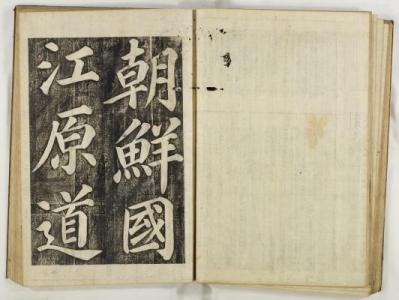 朝鮮國
江原道